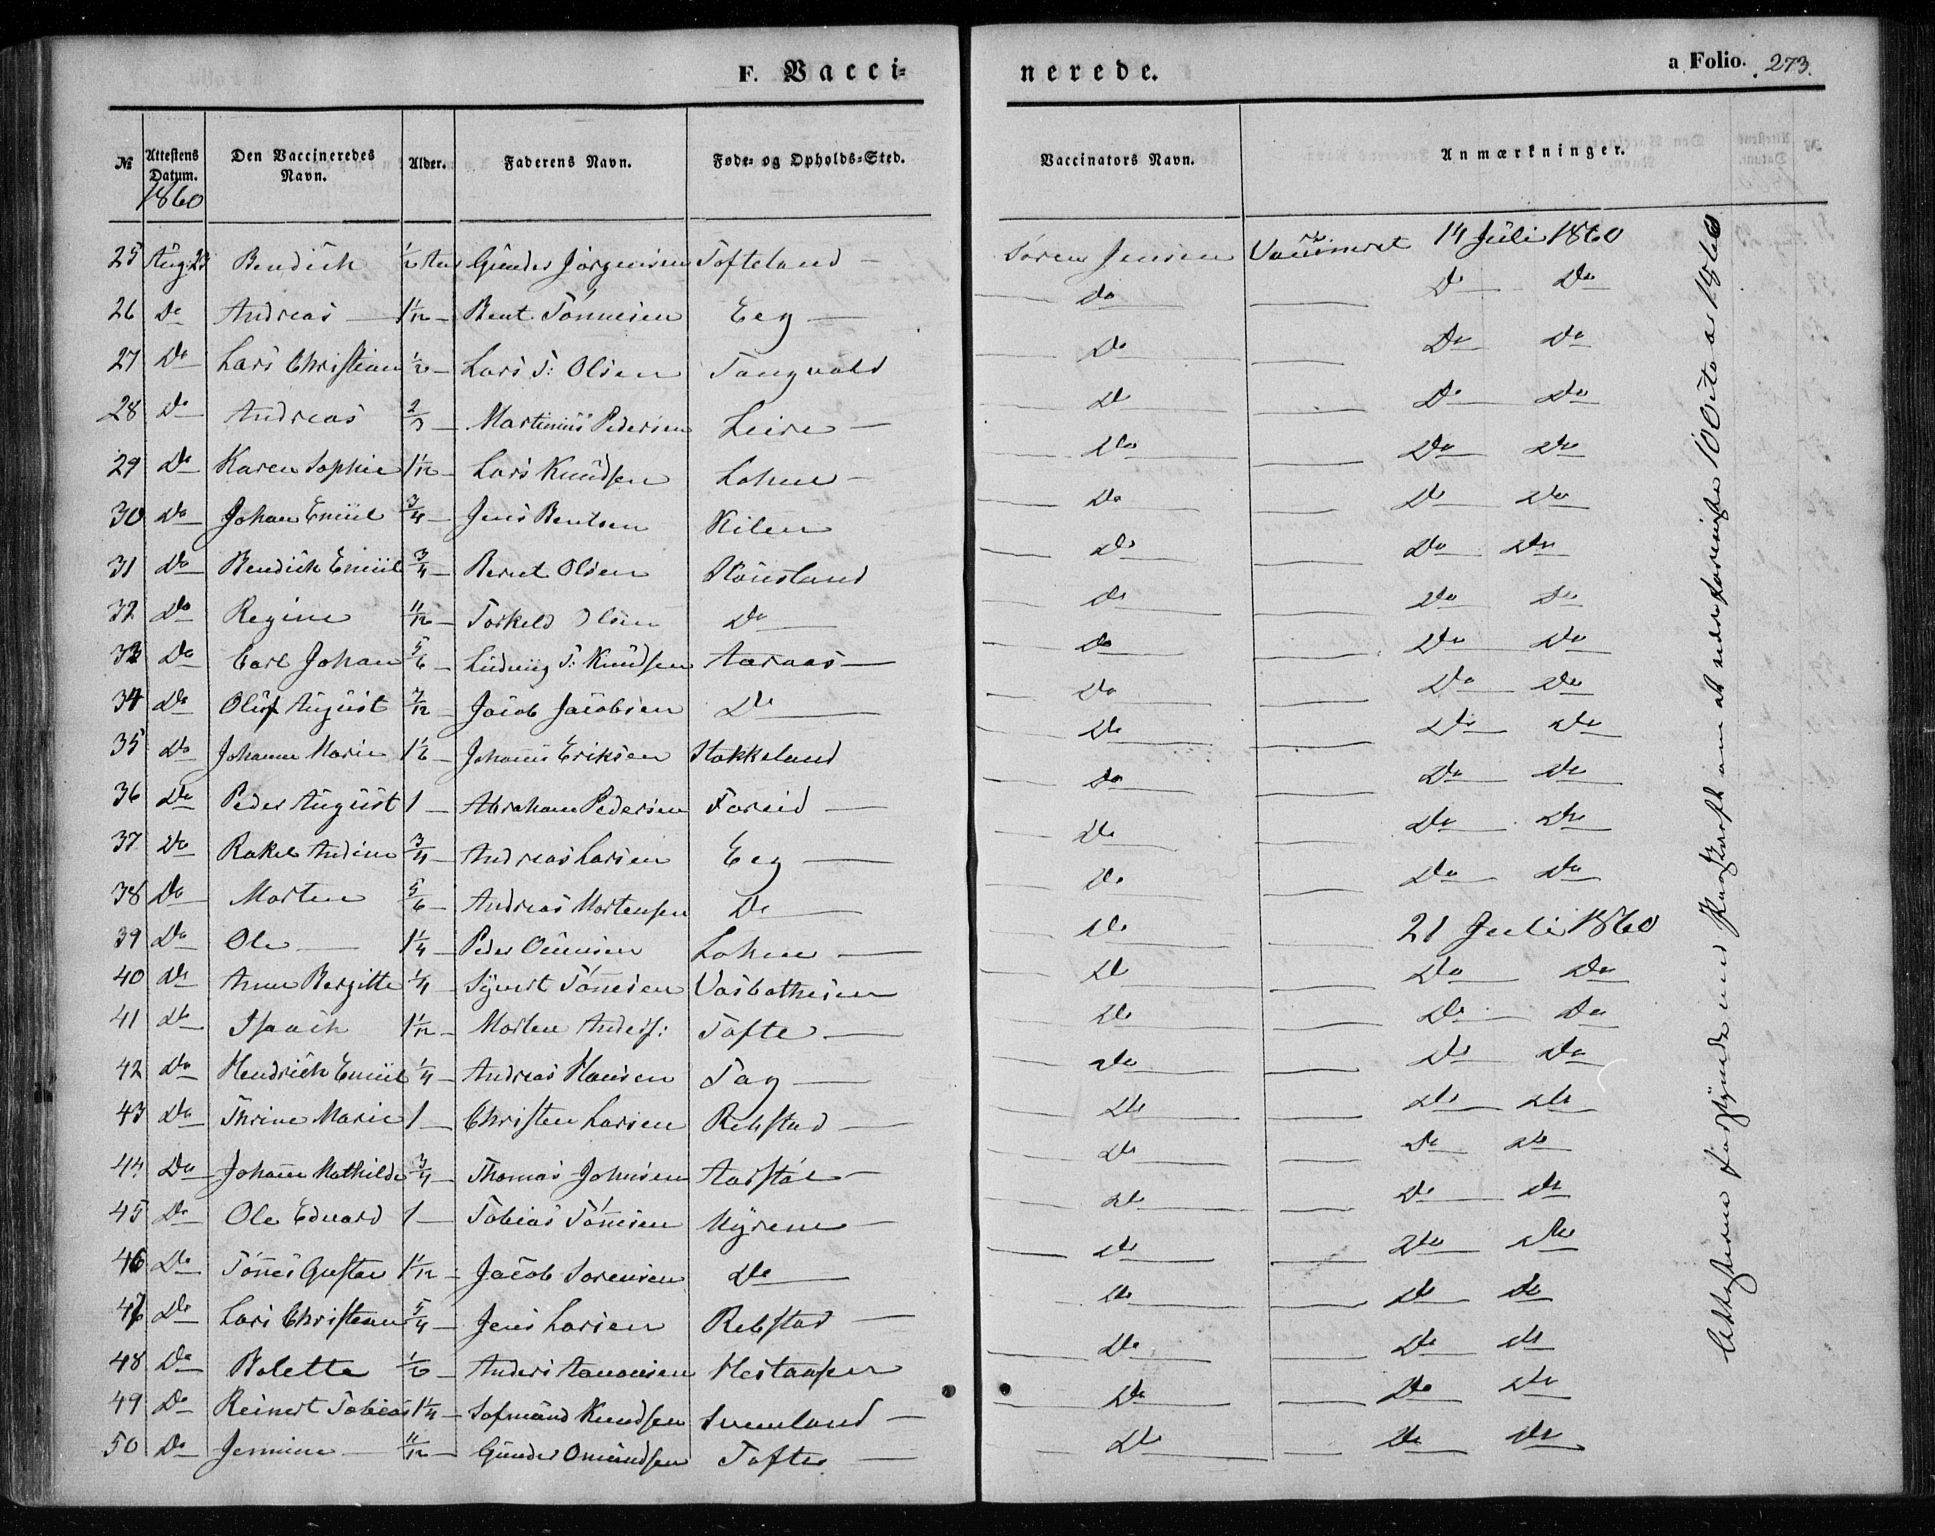 F. Vacci=
nerede.
a Folio. 273.
№ Attestens Datum. Den Vaccineredes Navn. Alder. Faderens Navn. Føde- og Opholds-Sted. Vaccinators Navn. Anmærkninger.
1860
25 Aug: 23 Bendich ½ Aar Gunder Jørgensen Tofteland — Søren Jensen Vaccineret 14 Juli 1860
26 Do Andreas — 1 1/12 — Bent Tönnesen Eeg — Do — Do Do
27 Do Lars Christian ½ — Lars T: Olsen Tangvald Do — Do Do
28 Do Andreas 2/3 — Martinius Pedersen Leire — Do — Do Do
29 Do Karen Sophie 1 1/12 — Lars Knudsen Lohne — Do — Do Do
30 Do Johan Emiil 3/4 — Jens Bentsen Kilen Do — Do Do
31 Do Bendich Emiil 3/4 — Bernt Olsen Do — Do Do
32 Do Regine 11/12 — Torkeld Olsen Do Do — Do Do
33 Do Carl Johan 5/6 — Ludvig T: Knudsen Aaraas — Do — Do Do
34 Do Oluf August 7/12 — Jacob Jacobsen Do Do — Do Do
35 Do Johanne Marie 1 1/6 — Johannes Eriksen Stokkeland Do — Do Do
36 Do Peder August 1 — Abraham Pedersen Foreid — Do — Do Do
37 Do Rakel Andine 3/4 — Andreas Larsen Eeg — Do — Do Do
38 Do Morten 5/6 — Andreas Mortensen Do Do — Do Do
39 Do Ole — 1 1/4 — Peder Lohne — Do — 21 Juli 1860
40 Do Anne Bergitte 1/4 — Syvert Tönnesen Do — Do Do
41 Do Isaach 1 1/12 — Morten Anders: Tofte — Do — Do Do
42 Do Hendrich Emiil 1/4 — Andreas Hansen Tag — Do — Do Do
43 Do Thrine Marie 1 — Christen Larsen Rebstad — Do — Do Do
44 Do Johanne Mathilde 3/4 — Thomas Johnsen Aarstöl — Do — Do Do
45 Do Ole Edvard 1 — Tobias Tönnesen Myrene — Do — Do Do
46 Do Tönnes Gustav 1 1/12 — Jacob Sorensen Do Do — Do Do
47 Do Lars Christian 5/4 — Jens Larsen Rebstad — Do — Do Do
48 Do Bolette Anders Aanonsen Do — Do Do
49 Do Reinert Tobias 1 1/4 — Sofmund Knudsen Sveinland — Do — Do Do
50 Do Jermine — 11/12 — Gunder Omundsen Tofte — Do — Do Do